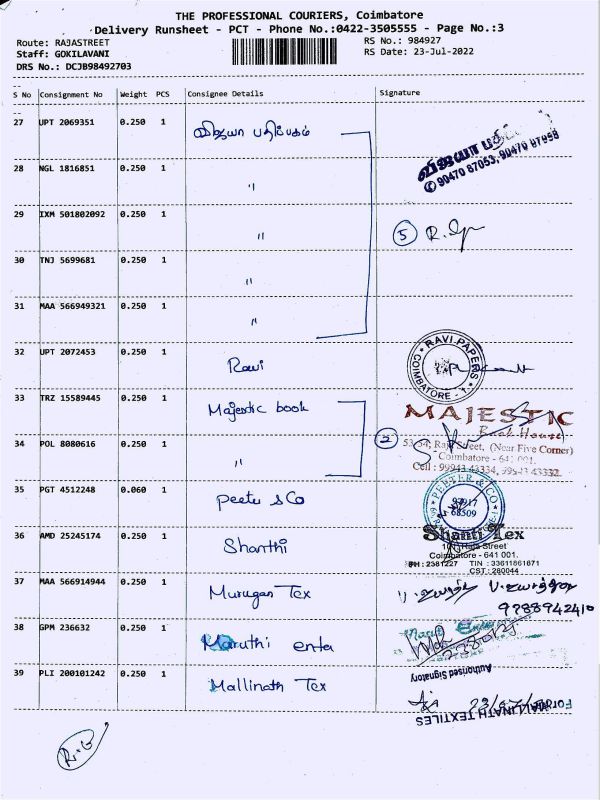 THE PROFESSIONAL COURIERS, Coimbatore
Delivery Runsheet - PCT - Phone No.:0422-3505555 - Page No.:3
Route: RAJASTREET
RS No.: 984927
Staff: GOKILAVANI
RS Date: 23-Jul-2022
DRS No.: DCJB98492703
S No Consignment No Weight PCS Consignee Details Signature
27 UPT 2069351 0.250 1 விஜயா பதிப்பகம்
விஜயா
✆ 90470 87053, 90470 87058
28 NGL 1816851 0.250 1 "
29 IXM 501802092 0.250 1 "
5
30 TNJ 5699681 0.250 1 "
31 MAA 566949321 0.250 1 "
32 UPT 2072453 0.250 1 Ravi
RAVI PAPERS
COIMBATORE - 1
33 TRZ 15589445 0.250 1 Majestic book
MAJESTIC
Book House
34 POL 8080616 0.250 1 "
2
53-54, Raja Street, (Near Five Corner)
Coimbatore - 641 001.
Cell : 99943 43334, 99943 43332
35 PGT 4512248 0.060 1 Peeter & Co
PEETER & CO
68509
36 AMD 25245174 0.250 1 Shanthi
Shanti Tex
Raja Street
Coimbatore - 641 001.
PH : 2381227 TIN : 33611861671
CST : 280044
37 MAA 566914944 0.250 1 Murugan Tex
9788942410
38 GPM 236632 0.250 1 Maruthi enta
Authorised Signatory
39 PLI 200101242 0.250 1 Mallinath Tex
For MALLINATH TEXTILES